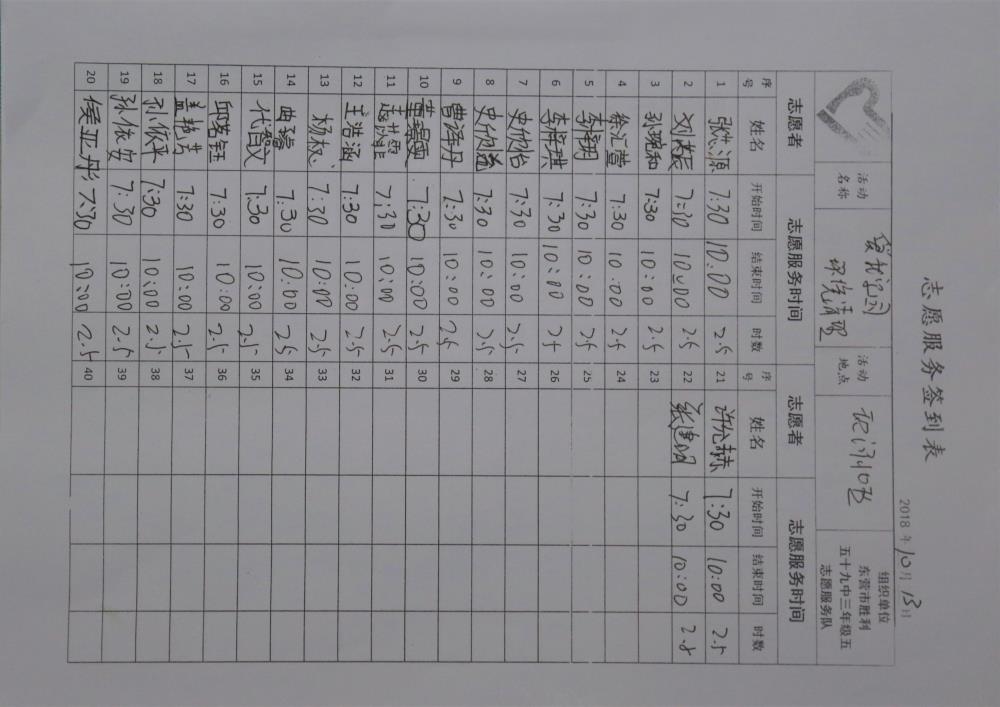 志愿服务签到表
2018 年 10 月 13 日
活动名称
活动地点
组织单位
东营市胜利
五十九中三年级五
志愿服务队
序号 志愿者姓名 志愿服务时间 开始时间 结束时间 时数 序号 志愿者姓名 志愿服务时间 开始时间 结束时间 时数
1 张 源 7:30 10:00 2.5 21 许 赫 7:30 10:00 2.5
2 刘 辰 7:30 10:00 2.5 22 张建明 7:30 10:00 2.5
3 和 7:30 10:00 2.5 23
4 徐汇萱 7:30 10:00 2.5 24
5 李 7:30 10:00 2.5 25
6 李梓琪 7:30 10:00 2.5 26
7 史欣怡 7:30 10:00 2.5 27
8 史欣益 7:30 10:00 2.5 28
9 曹泽丹 7:30 10:00 2.5 29
10 董 7:30 10:00 2.5 30
11 7:30 10:00 2.5 31
12 王浩涵 7:30 10:00 2.5 32
13 杨权 7:30 10:00 2.5 33
14 曲 7:30 10:00 2.5 34
15 代智文 7:30 10:00 2.5 35
16 邱茗钰 7:30 10:00 2.5 36
17 盖 7:30 10:00 2.5 37
18 孙依平 7:30 10:00 2.5 38
19 孙依安 7:30 10:00 2.5 39
20 侯亚彤 7:30 10:00 2.5 40